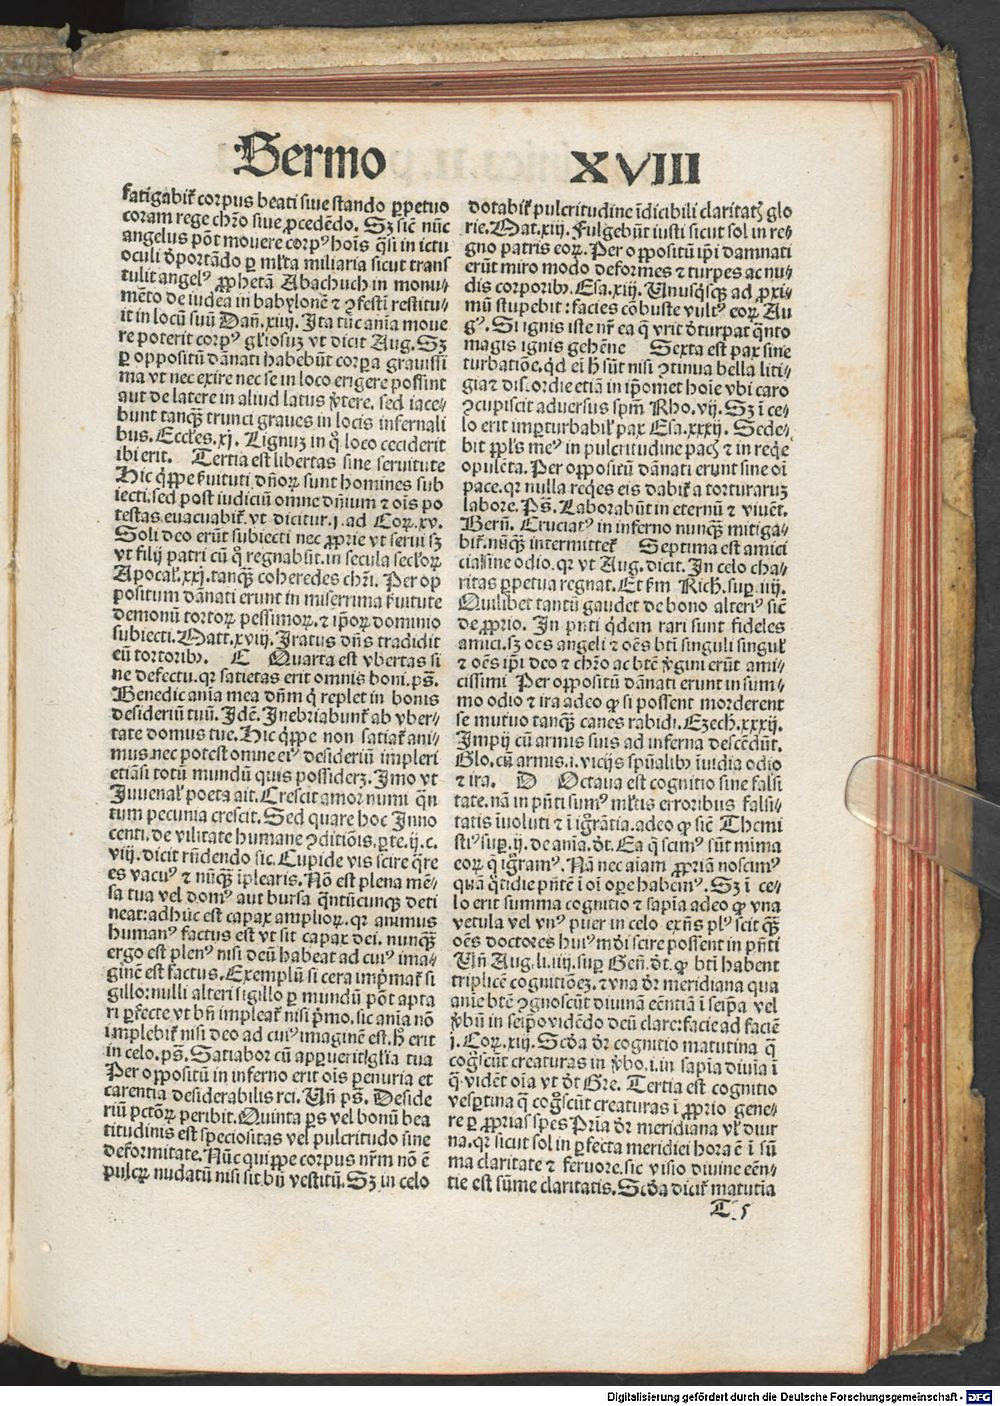 Sermo XVIII
fatigabit̃ corpus beati siue stando ꝑpetuo
coram rege chr̃o siue ꝓcedẽdo. Sꝫ sic̃ nũc
angelus põt mouere corpꝰ hoĩs q̃si in ictu
oculi deportãdo ꝑ ml̃ta miliaria sicut trans
tulit angelꝰ ꝓphetã Abachuch in monu⸗
mẽto de iudea in babylonẽ ⁊ ꝯfestĩ restitu⸗
it in locũ suũ Dañ. xiiij. Ita tũc anĩa moue
re poterit corpꝰ gl̃iosuꝫ vt dicit Aug. Sꝫ
ꝑ oppositũ dãnati habebũt corpora grauissi
ma vt nec exire nec se in loco erigere possint
aut de latere in aliud latus v̾tere. sed iace⸗
bunt tanq̃ꝫ trunci graues in locis infernali
bus. Eccl̃es. xj. Lignuꝫ in q̊ loco ceciderit
ibi erit. Tertia est libertas sine seruitute
Hic q̃ppe ẜuituti dñoꝝ sunt homines sub
iecti. sed post iudiciũ omne dñium ⁊ oĩs po
testas euacuabit̃. vt dicitur. j. ad Coꝝ. xv.
Soli deo erũt subiecti nec ꝓprie vt serui sꝫ
vt filij patri cũ q̊ regnabũt. in secula secl̃oꝝ
Apocal̃. xxj. tanq̃ꝫ coheredes chr̃i. Per op
positum dãnati erunt in miserrima ẜuitute
demonũ tortoꝝ pessimoꝝ. ⁊ ip̃oꝝ dominio
subiecti. Matt. xviij. Iratus dñs tradidit
eũ tortoribꝰ. C Quarta est vbertas si
ne defectu. qꝛ satietas erit omnis boni. ps̃.
Benedic anĩa mea dñm q̊ replet in bonis
desideriũ tuũ. Idẽ. Inebriabunt̃ ab vber⸗
tate domus tue. Hic q̃ppe non satiat̃ ani⸗
mus. nec potest omne eiꝰ desideriũ impleri
etiãsi totũ mundũ quis possideꝫ. Imo vt
Iuuenal̃ poeta ait. Crescit amor numi q̃n
tum pecunia crescit. Sed quare hoc Inno
centi. de vilitate humane ꝯditiõis. ꝑte. ij. c.
viij. dicit rñdendo sic. Cupide vis scire q̃re
es vacuꝰ ⁊ nũq̃ꝫ iplearis. Nõ est plena mẽ⸗
sa tua vel domꝰ aut bursa q̃ntũcunqꝫ deti
neat: adhuc est capax amplioꝝ. qꝛ animus
humanꝰ factus est vt sit capax dei. nunq̃ꝫ
ergo est plenꝰ nisi deũ habeat ad cuiꝰ ima⸗
ginẽ est factus. Exemplũ si cera imp̃mat̃ si
gillo: nulli alteri sigillo ꝑ mundũ põt apta
ri ꝑfecte vt bñ impleat̃ nisi p̃mo. sic anĩa nõ
implebit̃ nisi deo ad cuiꝰ imaginẽ est. h̃ erit
in celo. ps̃. Satiabor cũ apparuerit gl̃ia tua
Per oppositũ in inferno erit oĩs penuria et
carentia desiderabilis rei. Vñ ps̃. Deside
riũ pctõꝝ peribit. Quinta ps vel bonũ bea
titudinis est speciositas vel pulcritudo sine
deformitate. Nũc quippe corpus nr̃m nõ ẽ
pulcꝝ nudatũ nisi sit bñ vestitũ. Sꝫ in celo
dotabit̃ pulcritudine ĩdicibili claritatꝭ glo
rie. Mat. xiij. Fulgebũt iusti sicut sol in re⸗
gno patris eoꝝ. Per oppositũ ip̃i damnati
erũt miro modo deformes ⁊ turpes ac nu⸗
dis corporibꝰ. Esa. xiij. Unusq̃sqꝫ ad ꝓxi⸗
mũ stupebit: facies cõbuste vultꝰ eoꝝ Au
gꝰ. Si ignis iste nr̃ ea q̃ vrit deturpat q̃nto
magis ignis gehẽne Sexta est pax sine
turbatiõe. q̃d ei h̃ sũt nisi ꝯtinua bella liti⸗
gia ⁊ discordie etiã in ip̃omet hoĩe vbi caro
ꝯcupiscit aduersus spm̃ Rho. vij. Sꝫ ĩ ce⸗
lo erit imꝑturbabil̃ pax Esa. xxxij. Sede⸗
bit ppl̃s meꝰ in pulcritudine pacꝭ ⁊ in req̃e
opulẽta. Per oppositũ dãnati erunt sine oĩ
pace. qꝛ nulla req̃es eis dabit̃ a torturaruꝫ
labore. Ps̃. Laborabũt in eternũ ⁊ viuẽt.
Berñ. Cruciatꝰ in inferno nunq̃ꝫ mitiga⸗
bit̃. nũq̃ꝫ intermittet̃ Septima est amici
cia sine odio. qꝛ vt Aug. dicit. In celo cha⸗
ritas ꝑpetua regnat. Et ẜm Rich. suꝑ. iiij.
Quilibet tantũ gaudet de bono alteriꝰ sic̃
de ꝓprio. In pñti q̃dem rari sunt fideles
amici. sꝫ oẽs angeli ⁊ oẽs bt̃i singuli singul̃
⁊ oẽs ip̃i deo ⁊ chr̃o ac bt̃e v̾gini erũt ami⸗
cissimi Per oppositũ dãnati erunt in sum⸗
mo odio ⁊ ira adeo ꝙ si possent morderent
se mutuo tanq̃ꝫ canes rabidi. Ezech. xxxij.
Impij cũ armis suis ad inferna descẽdũt.
Glo. cũ armis. i. vicijs spũalibꝰ ĩuidia odio
⁊ ira. D Octaua est cognitio sine falsi
tate. nã in pñti sumꝰ ml̃tis erroribus falsi⸗
tatis ĩuoluti ⁊ ĩ igr̃ãtia. adeo ꝙ sic̃ Themi
stiꝰ suꝑ. ij. de anĩa. dt̃. Ea q̃ scimꝰ sũt minima
eoꝝ q̃ igr̃amꝰ. Nã nec aĩam ꝓpriam noscimꝰ
quã q̊tidie pñtẽ ĩ oĩ oꝑe habemꝰ. Sꝫ ĩ ce⸗
lo erit summa cognitio ⁊ sapĩa adeo ꝙ vna
vetula vel vnꝰ puer in celo exñs plꝰ scit q̃ꝫ
oẽs doctores huiꝰ mũdi scire possent in pñti
Vñ Aug. li. iiij. suꝑ Geñ. dt̃. ꝙ bt̃i habent
triplicẽ cognitiõeꝫ. ⁊ vna dr̃ meridiana qua
anĩe bt̃e ꝯgnoscũt diuinã eẽntiã ĩ seip̃a vel
v̾bũ in seip̃o vidẽdo deũ clare: facie ad faciẽ
j. Coꝝ. xiij. Scd̃a dr̃ cognitio matutina q̃
cog̃scũt creaturas in v̾bo. i. in sapĩa diuĩa ĩ
q̃ vidẽt oĩa vt dt̃ Gre. Tertia est cognitio
vesꝑtina q̃ cog̃scũt creaturas ĩ ꝓprio gene⸗
re ꝑ ꝓprias sp̃es Prĩa dr̃ meridiana vl̃ diur
na. qꝛ sicut sol in ꝑfecta meridiei hora ẽ ĩ sũ
ma claritate ⁊ feruore. sic visio diuine eẽn⸗
tie est sũme claritatis. Scd̃a dicit̃ matutĩa
T 5
Digitalisierung gefördert durch die Deutsche Forschungsgemeinschaft - DFG